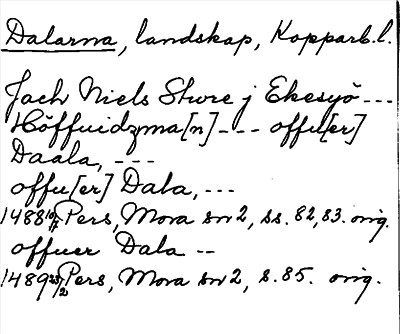 Dalarna, landskap, Kopparb. l.
Jach Niels Sture j Ekesyö ---
Höffuidzma[n] --- offu[er]
Daala, ---
offu[er] Dala, ---
1488 10/7 Pers, Mora sn 2, ss. 82, 83. orig.
offuer Dala --
1489 23/2 Pers, Mora sn 2, s. 85. orig.